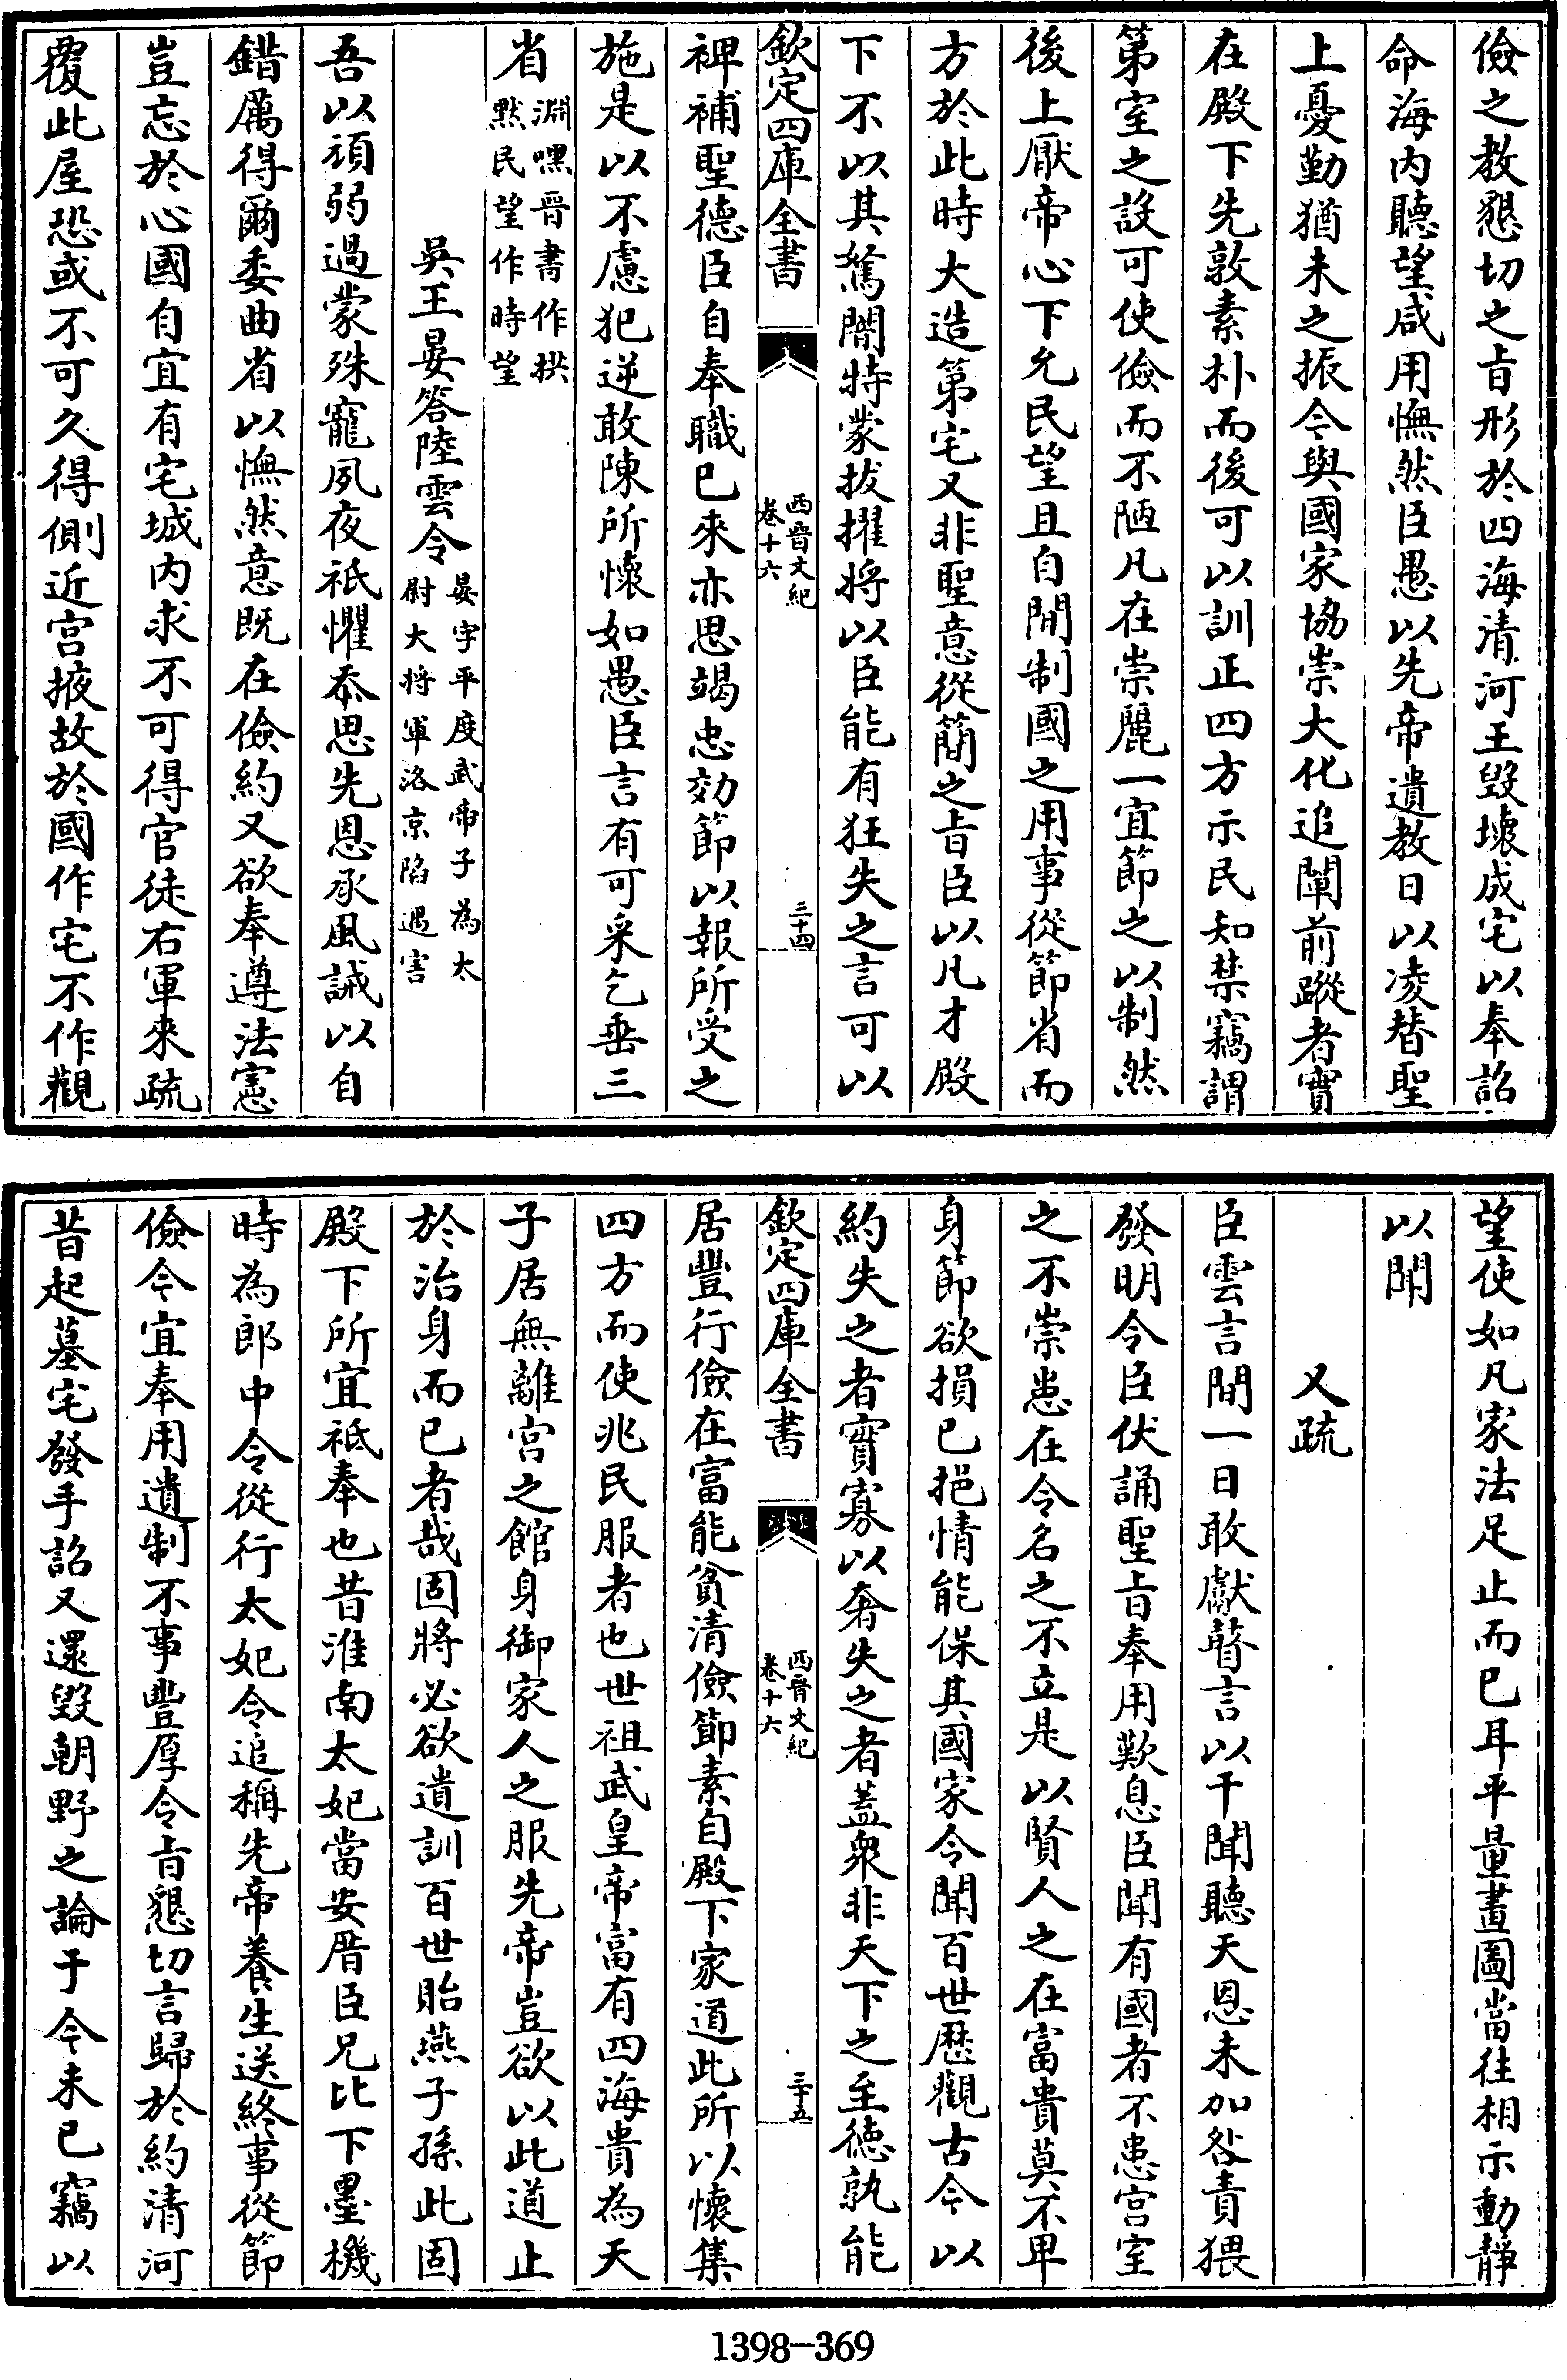 儉之教懇切之㫖形於四海清河王毀壞成宅以奉詔
命海内聽望咸用憮然臣愚以先帝遺教日以凌替聖
上憂勤猶未之振今與國家協崇大化追闡前蹤者實
在殿下先敦素朴而後可以訓正四方示民知禁竊謂
第室之設可使儉而不陋凡在崇麗一宜節之以制然
後上厭帝心下允民望且自間制國之用事從節省而
方於此時大造第宅又非聖意從簡之㫖臣以凡才殿
下不以其駑闇特蒙拔擢將以臣能有狂失之言可以
欽定四庫全書
西晉文紀
卷十六
三十四
裨補聖德臣自奉職已來亦思竭忠効節以報所受之
施是以不慮犯逆敢陳所懷如愚臣言有可采乞垂三
省
淵嘿晉書作拱
黙民望作時望
吳王晏答陸雲令
晏字平度武帝子為太
尉大將軍洛京陷遇害
吾以頑弱過蒙殊寵夙夜祇懼忝思先恩承風誡以自
錯厲得爾委曲省以憮然意既在儉約又欲奉遵法憲
豈忘於心國自宜有宅城内求不可得官徒右軍來疏
覆此屋恐或不可久得側近宫掖故於國作宅不作觀
望使如凡家法足止而已耳平量畫圖當往相示動靜
以聞
又疏
臣雲言間一日敢獻瞽言以干聞聽天恩未加咎責猥
發明令臣伏誦聖㫖奉用歎息臣聞有國者不患宫室
之不崇患在令名之不立是以賢人之在富貴莫不卑
身節欲損已挹情能保其國家令聞百世歴觀古今以
約失之者實寡以奢失之者蓋衆非天下之至徳孰能
欽定四庫全書
西晉文紀
卷十六
三十五
居豐行儉在富能貧清儉節素自殿下家道此所以懷集
四方而使兆民服者也世祖武皇帝富有四海貴為天
子居無離宫之館身御家人之服先帝豈欲以此道止
於治身而已者哉固將必欲遺訓百世貽燕子孫此固
殿下所宜祗奉也昔淮南太妃當安厝臣兄比下墨機
時為郎中令從行太妃令追稱先帝養生送終事從節
儉今宜奉用遺制不事豐厚令㫖懇切言歸於約清河
昔起墓宅發手詔又還毀朝野之論于今未已竊以
1398-369